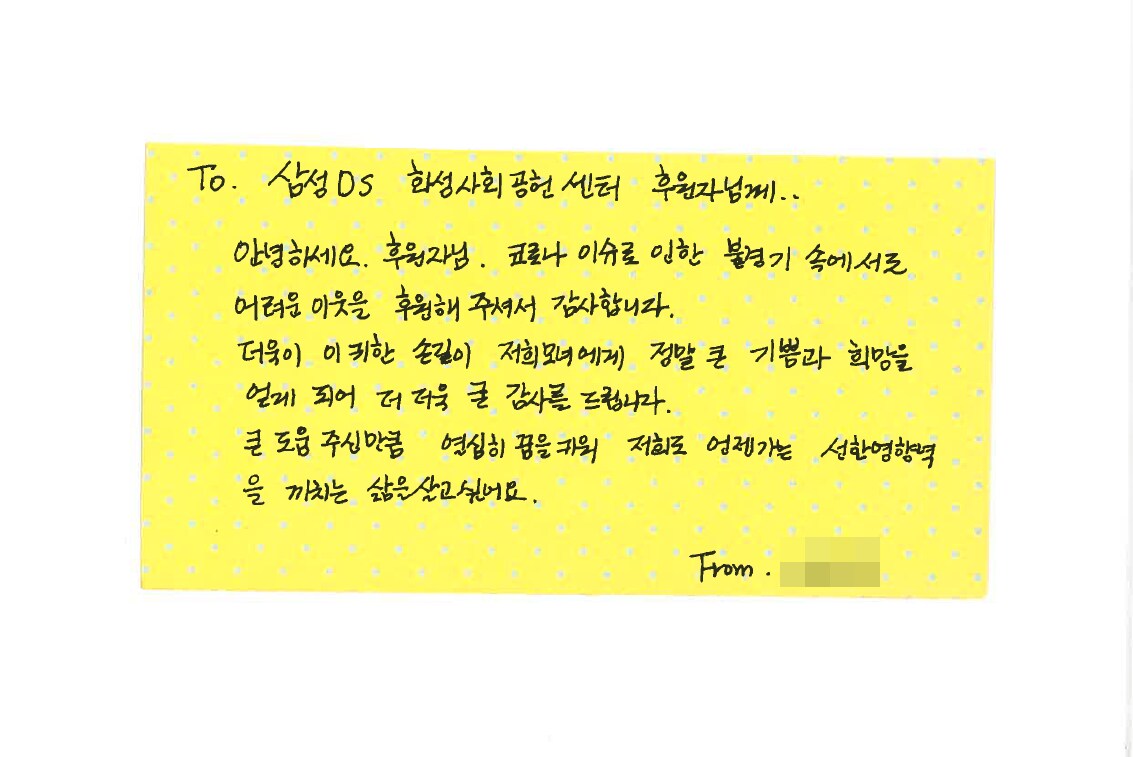 To. 삼성DS 화성사회공헌센터 후원자님께..
안녕하세요. 후원자님. 코로나 이슈로 인한 불경기 속에서도
어려운 이웃을 후원해 주셔서 감사합니다.
더욱이 이 귀한 손길이 저희모녀에게 정말 큰 기쁨과 희망을
얻게 되어 더 더욱 큰 감사를 드립니다.
큰 도움 주신만큼 열심히 꿈을 키워 저희도 언젠가는 선한영향력
을 끼치는 삶을 살고 싶어요.
From.